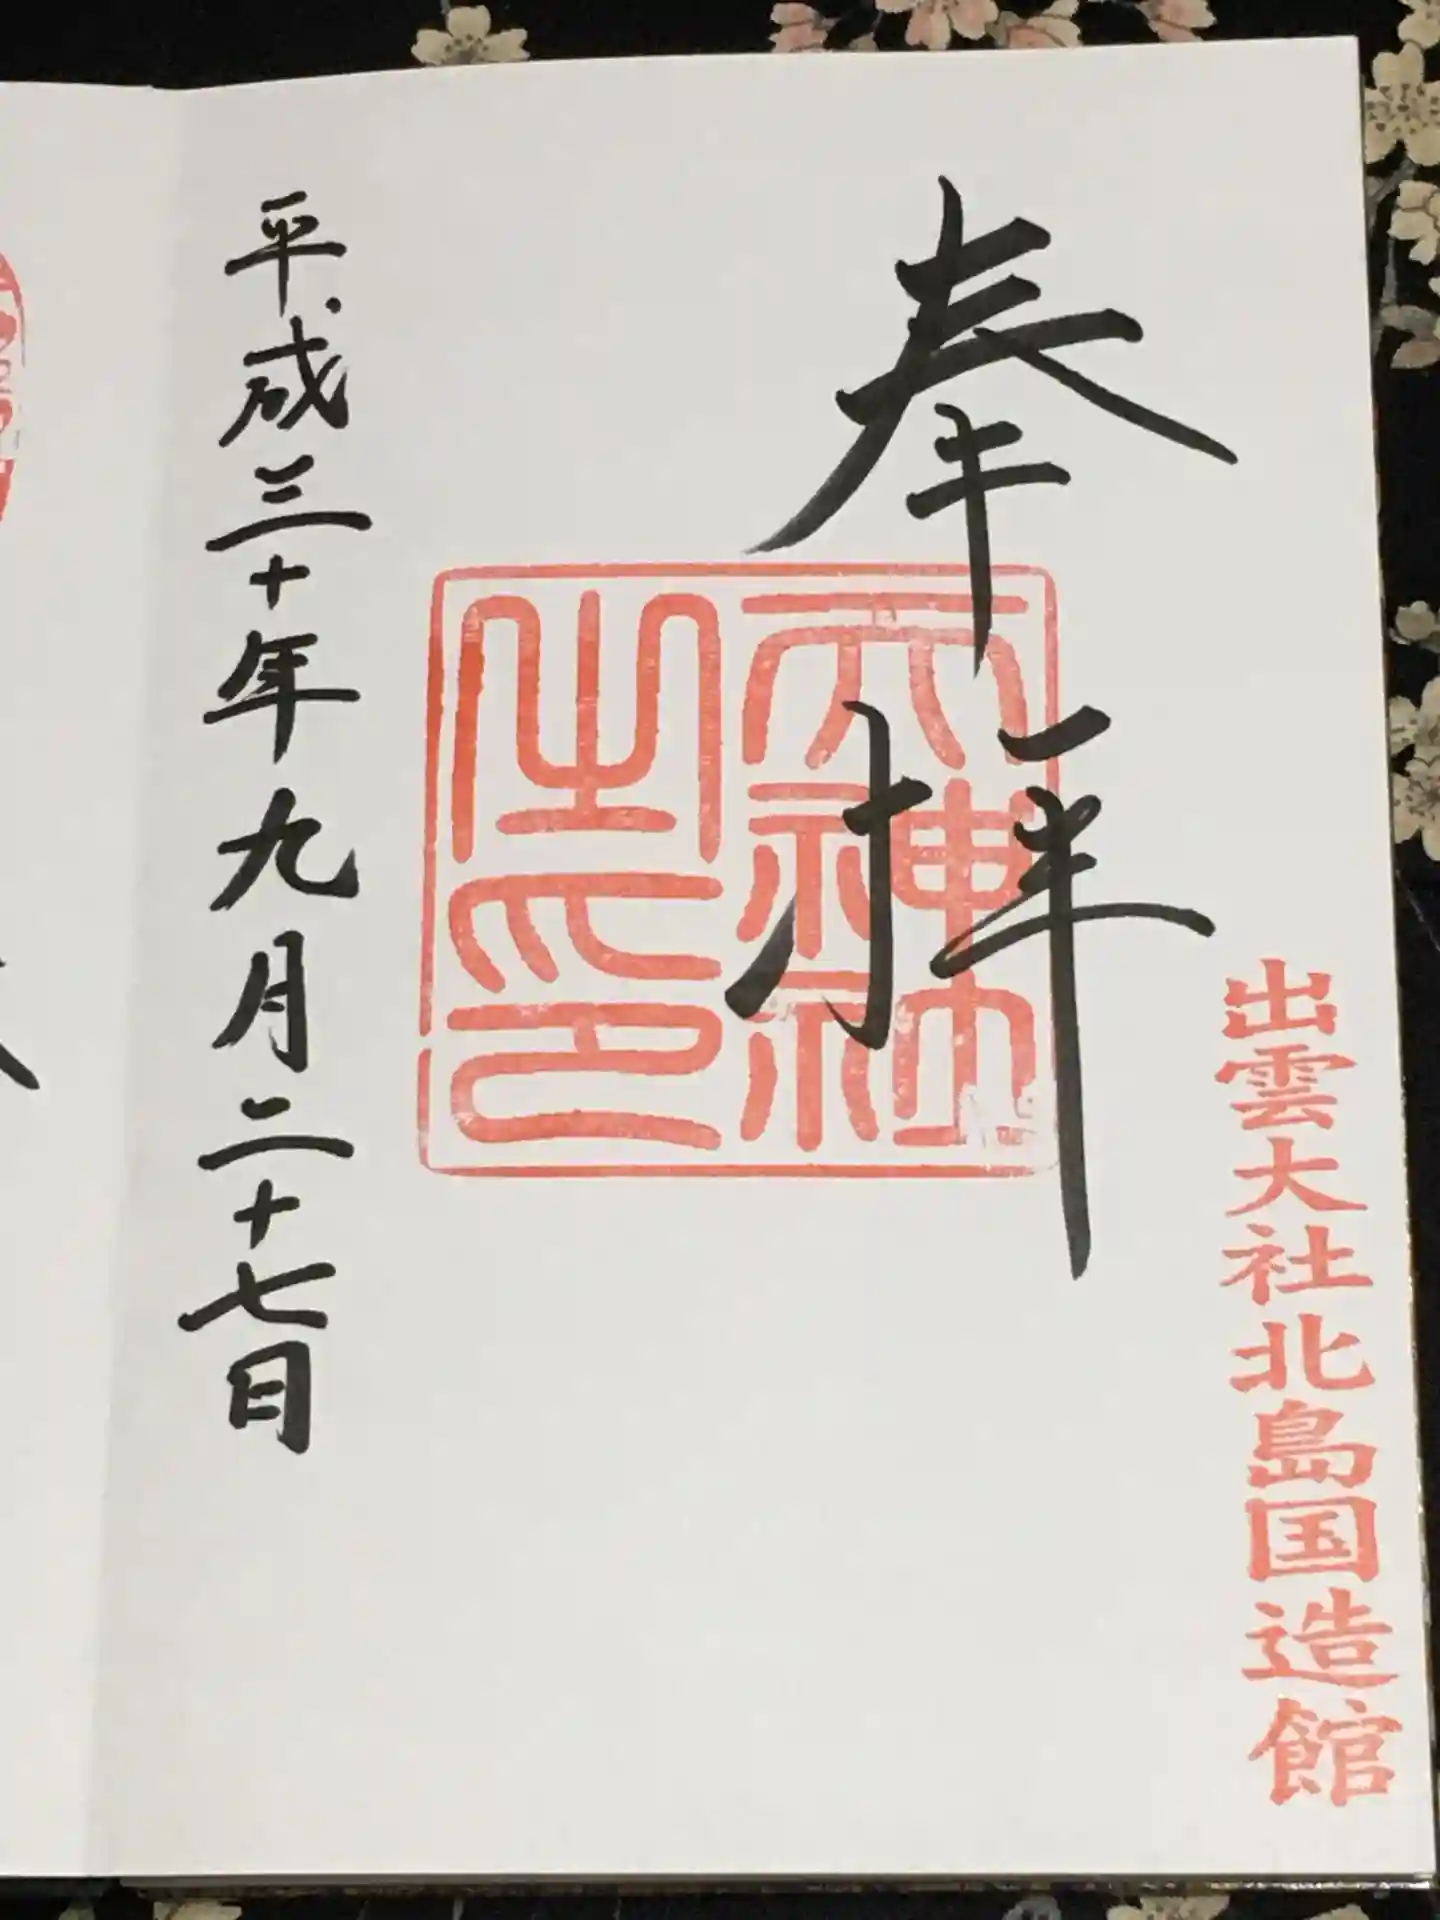 出雲大社北島国造館
奉拝
天神社
之印
平成三十年九月二十七日